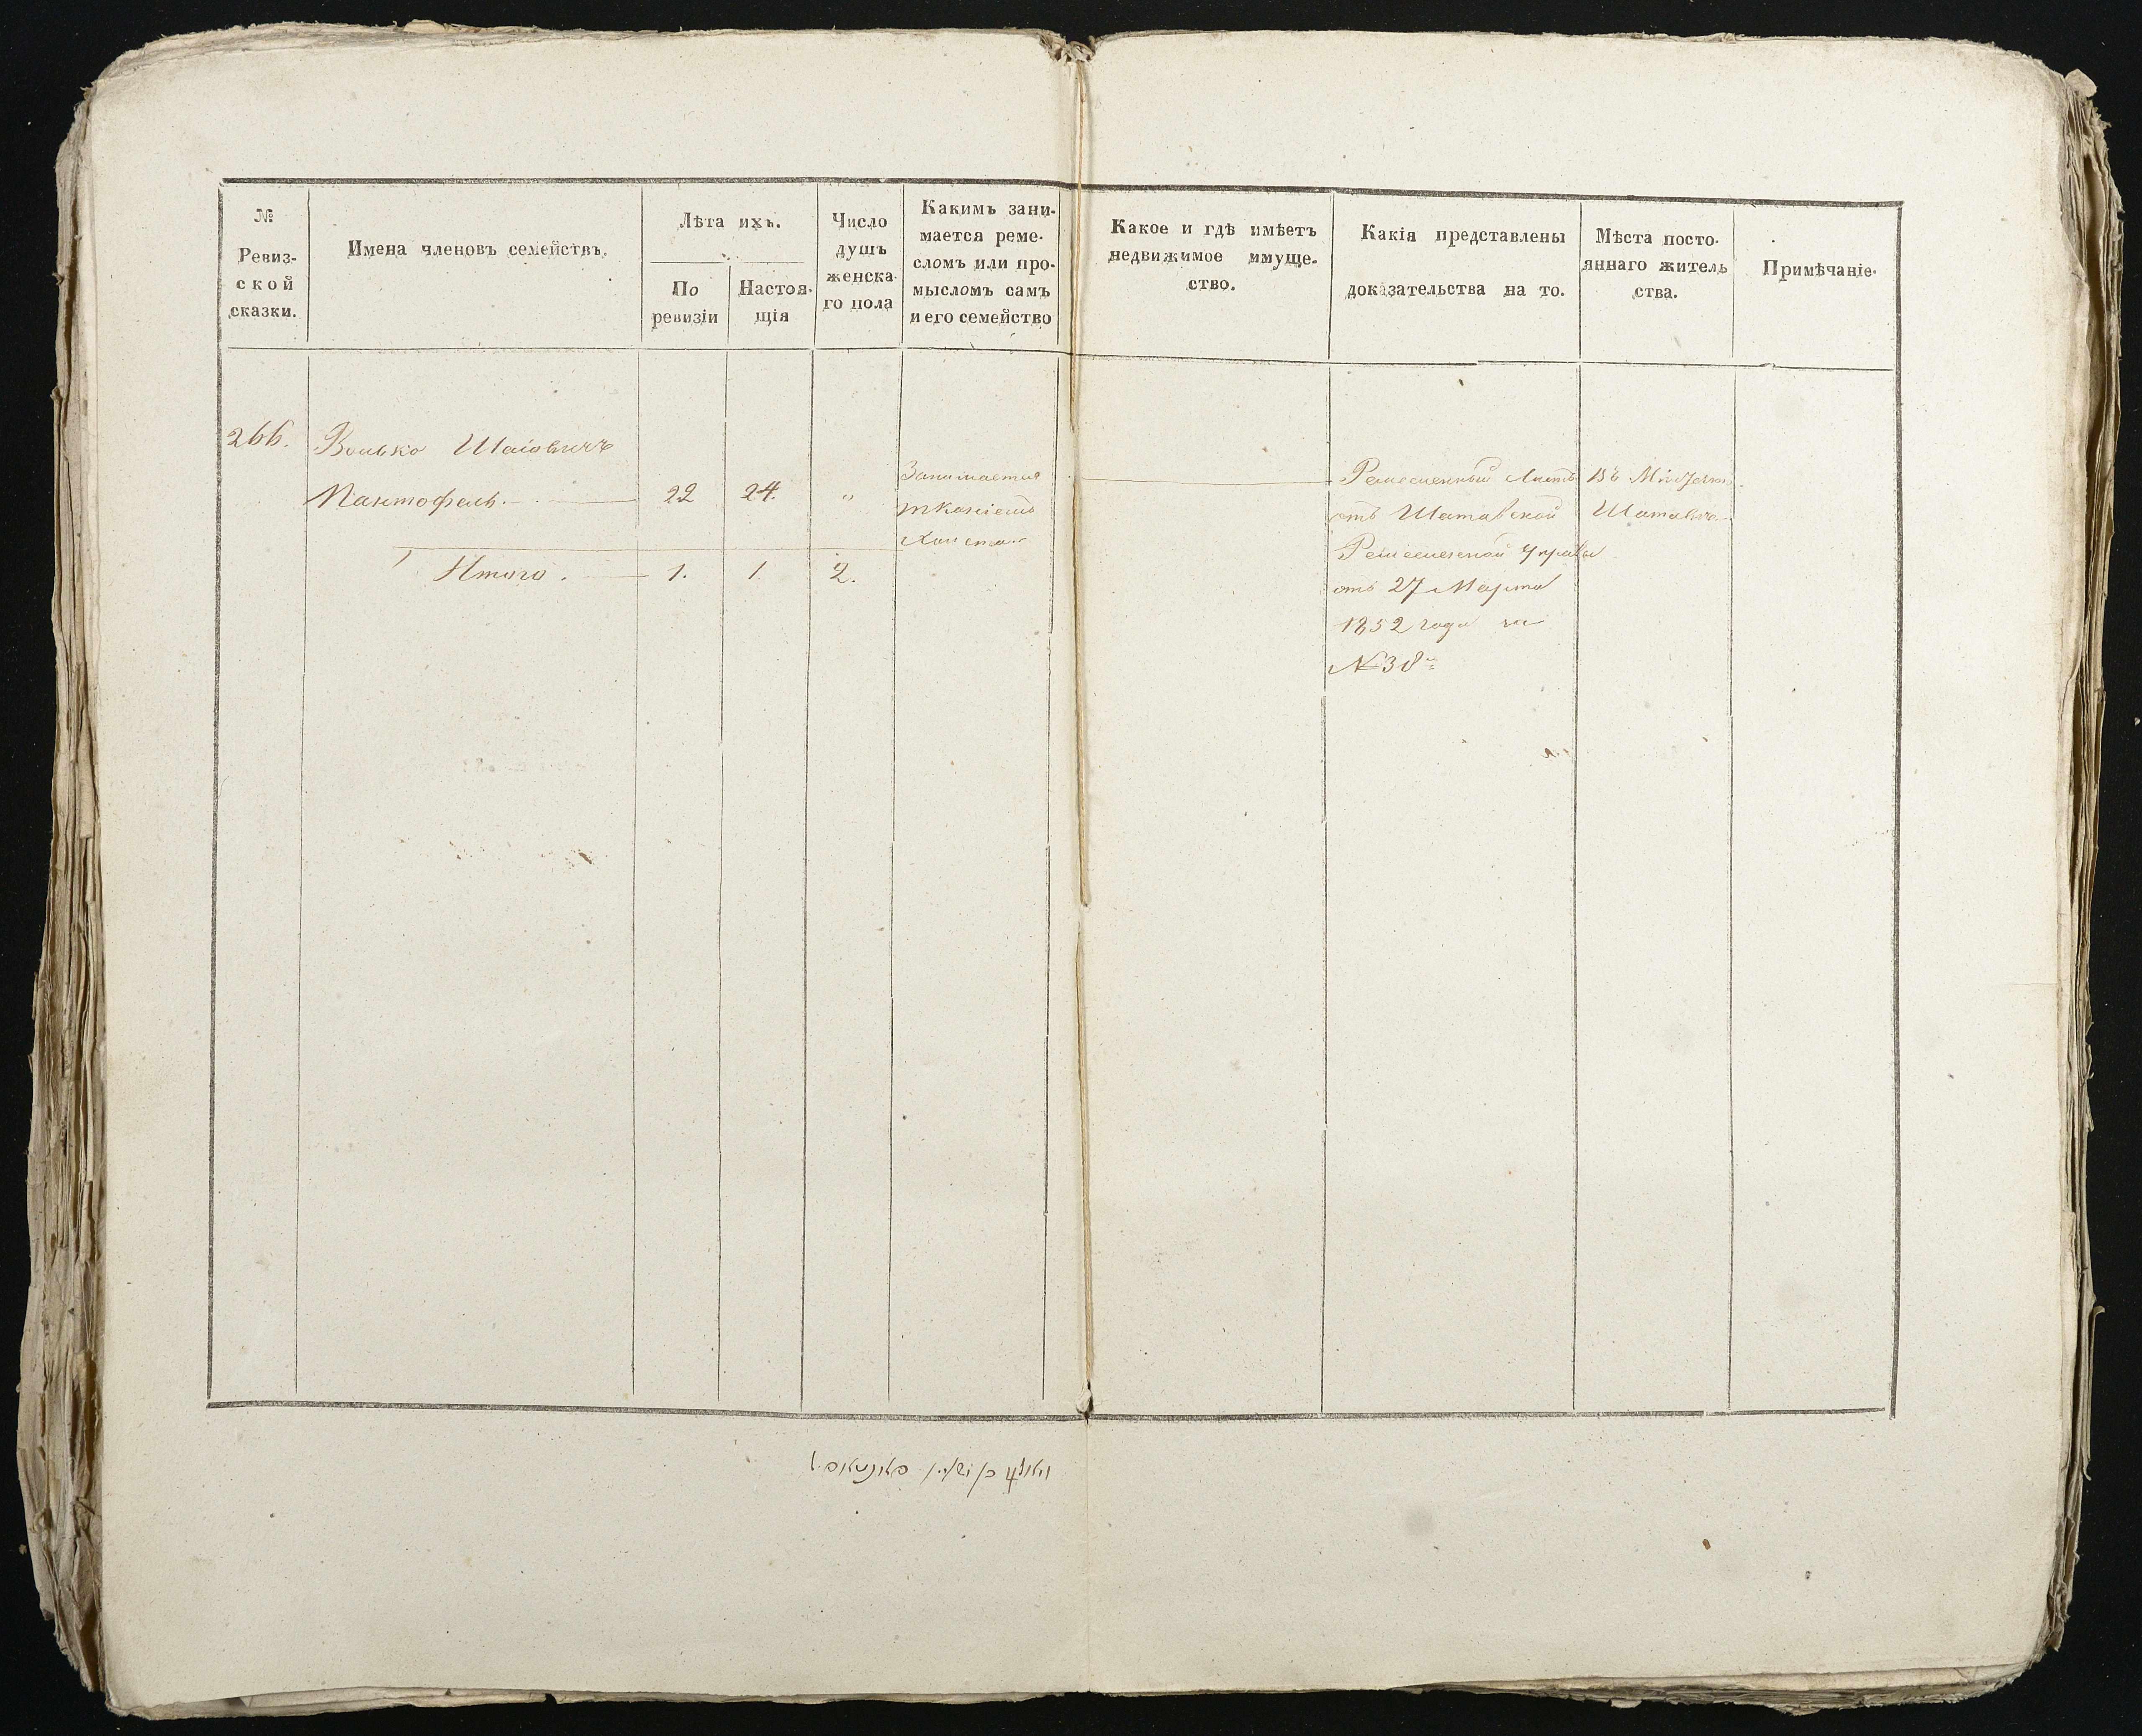 №
Ревиз-
ской
сказки.
Имена членовъ семействъ.
Лѣта ихъ.
По
ревизіи
Настоя-
щія
Число
душъ
женска-
го пола
Какимъ зани-
мается реме-
сломъ или про-
мысломъ самъ
и его семейство
Какое и гдѣ имѣетъ
недвижимое имуще-
ство.
Какія представлены
доказательства на то.
Мѣста посто-
яннаго житель
ства.
Примѣчаніе.
266.
Волько Шаіовичъ
Пантофель.
22
24.
"
Занимается
тканіемъ
холста.
Ремесленный листъ
отъ Шатавской
Ремесленной Управы
отъ 27 Марта
1852 года за
№ 38
Въ
Шатавѣ
Итого.
1.
1
2.